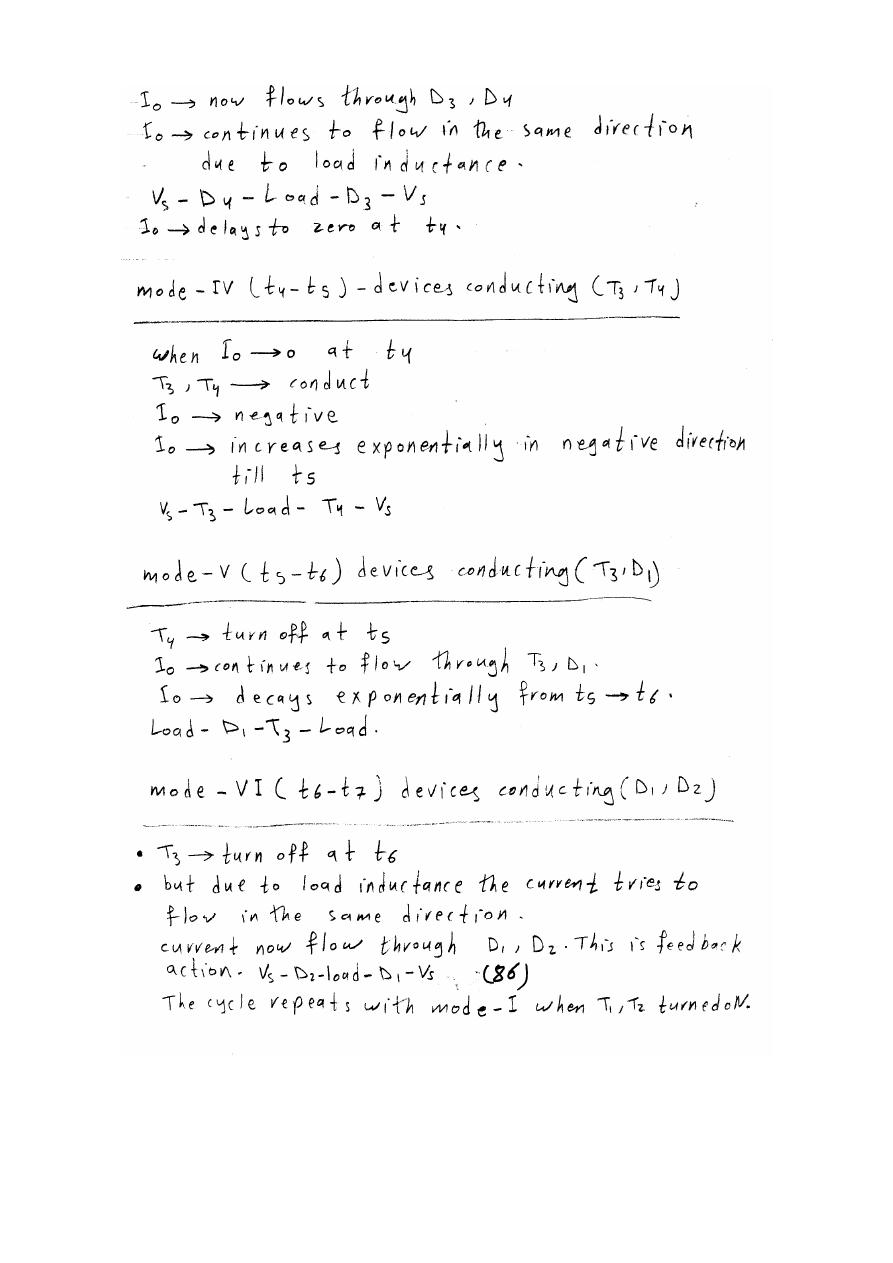 Io → now flows through D3, D4
Io → continues to flow in the same direction
due to load inductance.
Vs - D4 - Load - D3 - Vs
Io → delays to zero at t4.
mode - IV (t4-t5) - devices conducting (T3, T4)
when Io → 0 at t4
T3, T4 → conduct
Io → negative
Io → increases exponentially in negative direction
till t5
Vs - T3 - Load - T4 - Vs
mode - V (t5-t6) devices conducting (T3, D1)
T4 → turn off at t5
Io → continues to flow through T3, D1.
Io → decays exponentially from t5 → t6.
Load - D1 - T3 - Load.
mode - VI (t6-t7) devices conducting (D1, D2)
• T3 → turn off at t6
• but due to load inductance the current tries to
flow in the same direction.
current now flow through D1, D2. This is feedback
action. Vs - D2-load - D1 - Vs (86)
The cycle repeats with mode - I when T1, T2 turnedoN.